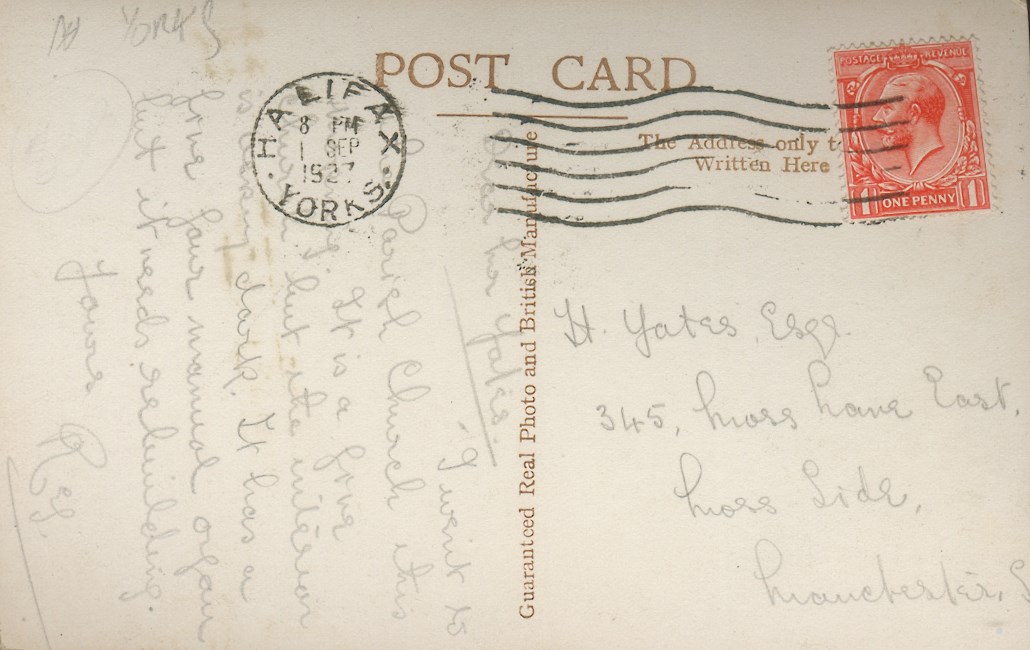 YORKS
POST CARD
HALIFAX
8 PM
1 SEP
1927
YORKS.
POSTAGE REVENUE
1 ONE PENNY 1
The Address only t
Written Here
Guaranteed Real Photo and British Manufacture
Dear Mr Yates.
I went to
the Parish Church this
It is a fine
but the interior
is dark. It has a
fine four manual organ
but it needs rebuilding.
Yours
Reg.
H. Yates, Esq.
345, Moss Lane East,
Moss Side,
Manchester, S